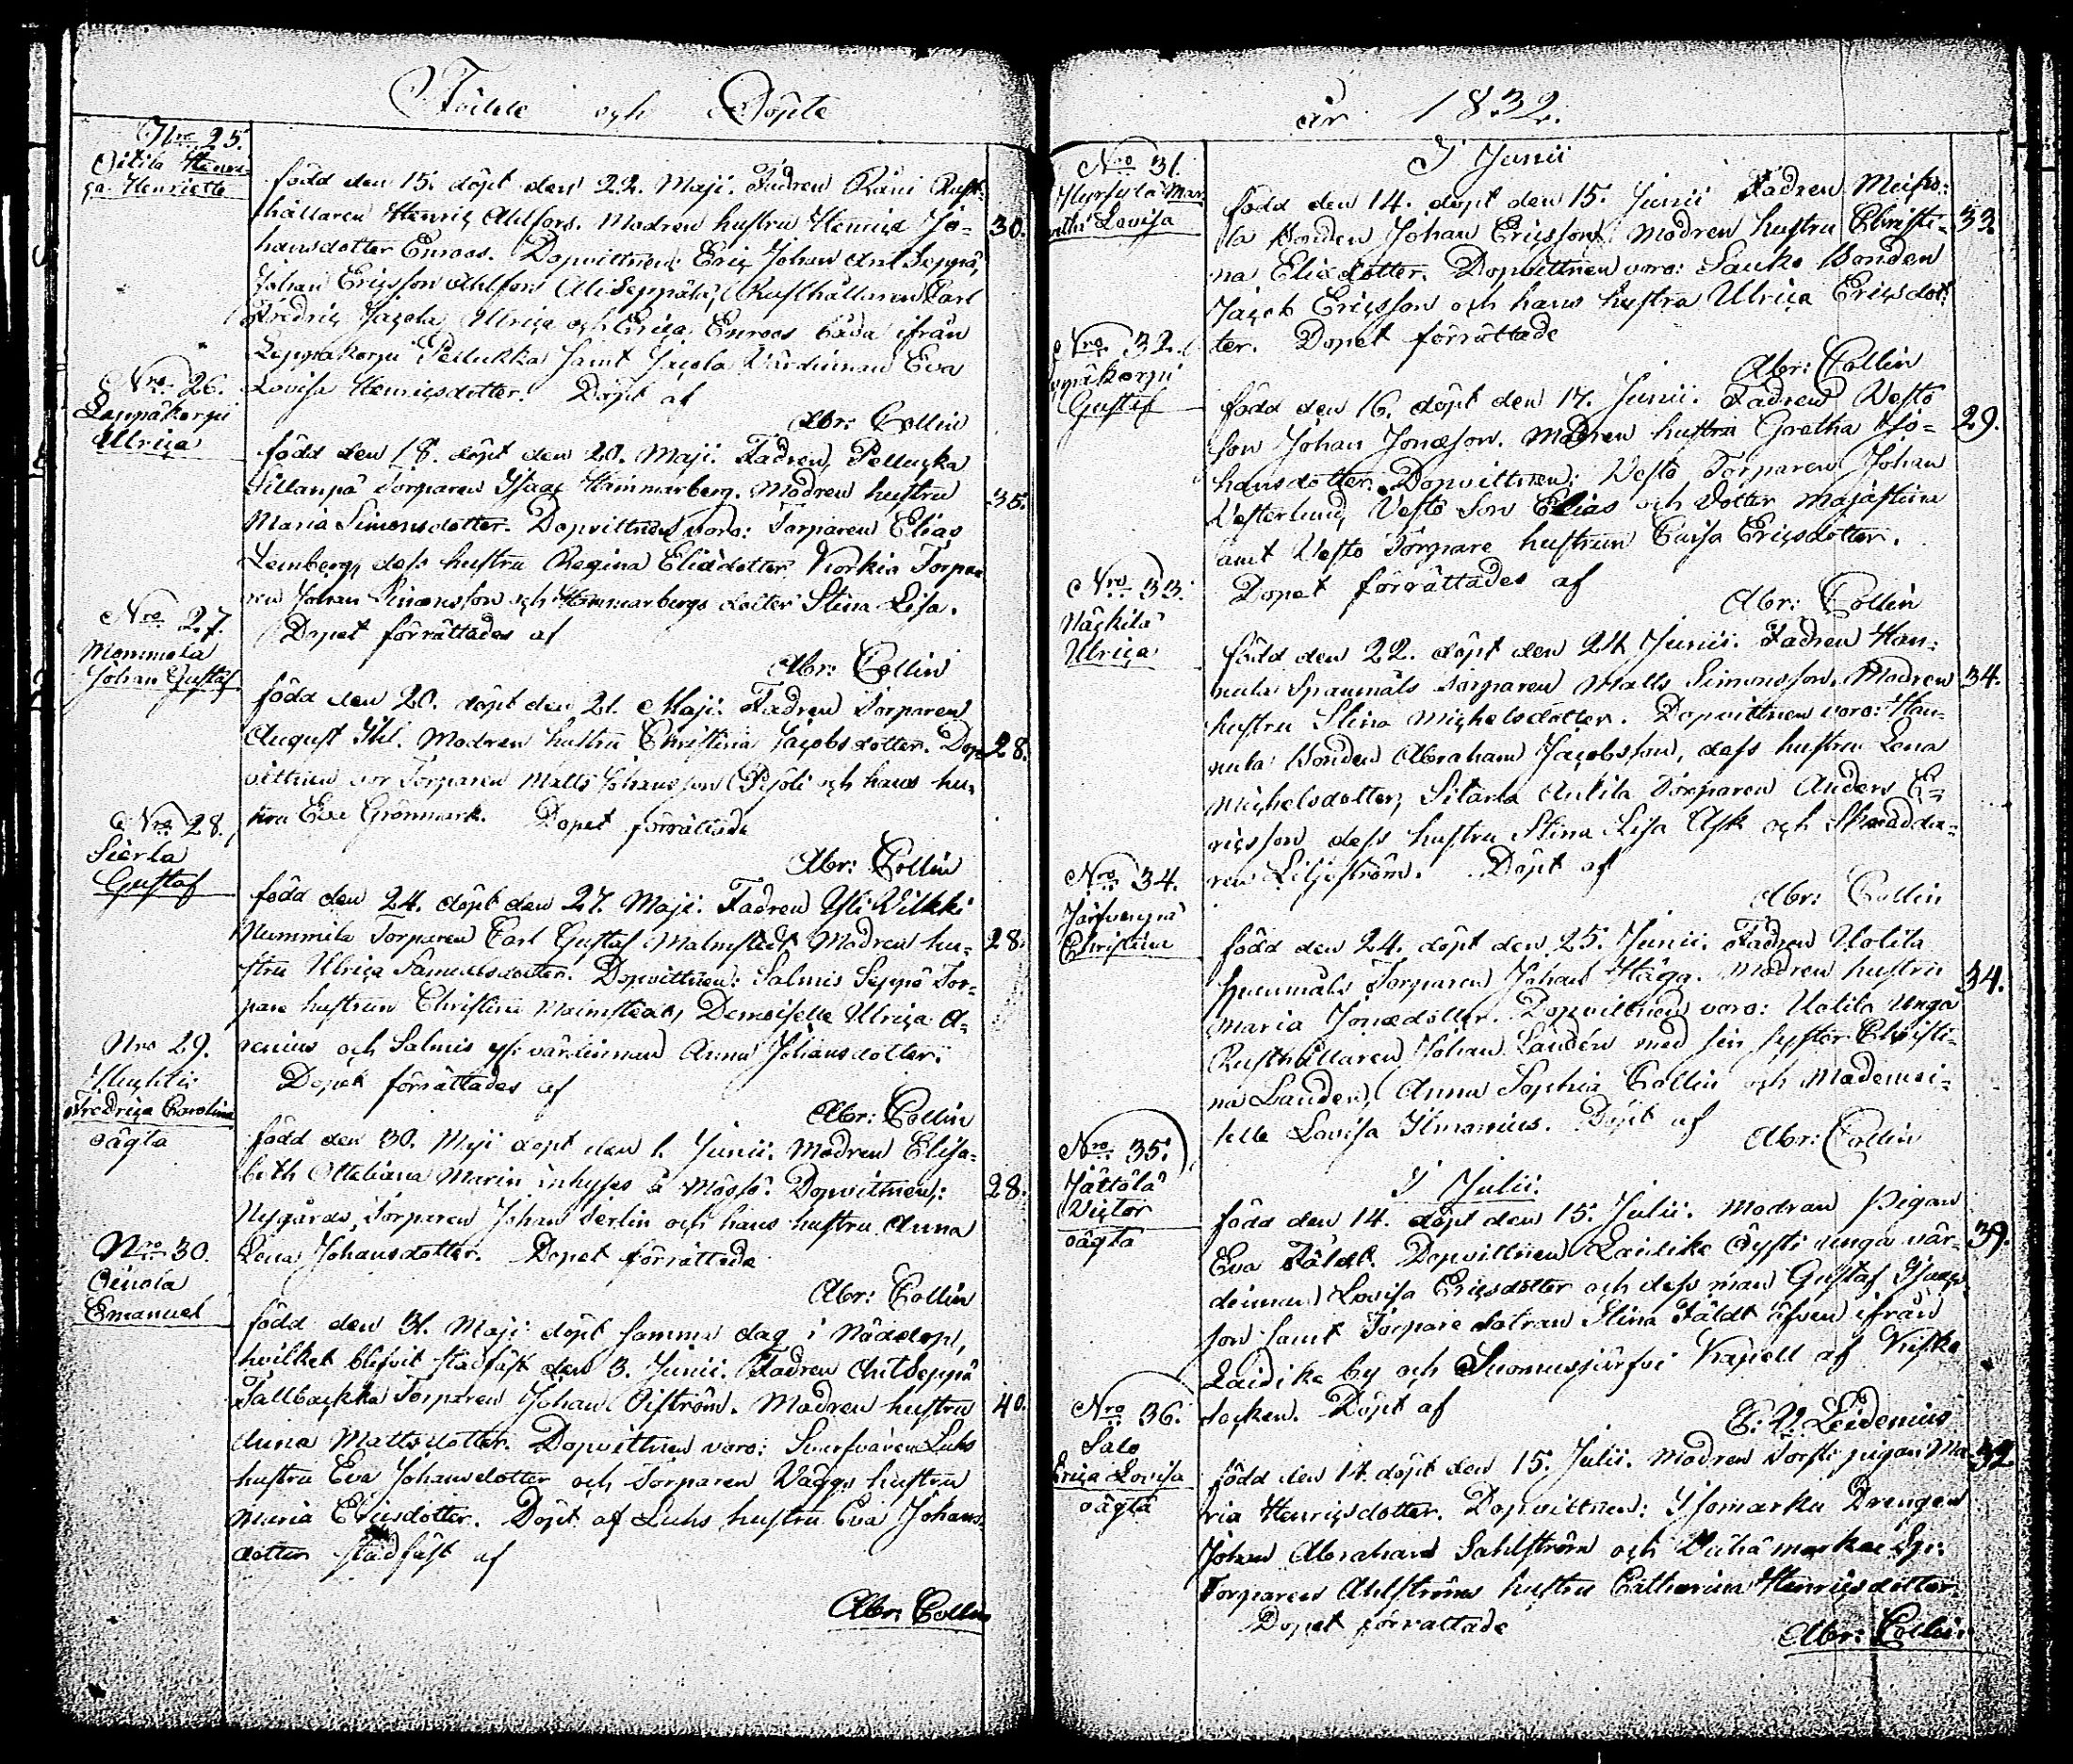 Födde och Döpte
Nro 25.
Oitila Henri-
ca Henriette
född den 15. döpt den 22. Maji. Fadren Räni Rust-
hållaren Henric Ahlfors. Modren hustru Henrica Jo-
30.
hansdotter Enroos. Dopvittnen: Eric Johan Antseppä,
Johan Ericsson Ahlfors Aliseppälä, Rusthållaren Carl
Fredric Jacola, Ulrica och Erica Enroos båda ifrån
Leppäkorpi Pellukka samt Jacola Värdinnan Eva
Lovisa Henricsdotter. Döpt af
Abr: Collin
Nro 26.
Leppäkorpi
Ulrica
född den 18. döpt den 20. Maji. Fadren Pellucka
Sillanpä Torparen Isaac Hammarberg. Modren hustru
35.
Maria Simonsdotter. Dopvittnen voro: Torparen Elias
Lemberg, dess hustru Regina Eliædotter Korkia Torpa-
ren Johan Simonsson och Hammarbergs dotter Stina Lisa.
Dopet förrättades af
Abr: Collin
Nro 27.
Mommola
Johan Gustaf
född den 20. döpt den 21. Maji. Fadren Torparen
August Ihl. Modren hustru Christina Jacobsdotter. Dop-
28.
vittnen vor Torparen Matts Johansson och hans hu-
stru Eva Grönmark. Dopet förrättade
Abr: Collin
Nro 28.
Sierla
Gustaf
född den 24. döpt den 27. Maji. Fadren Yli Vilkki
Nummila Torparen Carl Gustaf Malmstedt Modren hu-
28.
stru Ulrica Samuelsdotter. Dopvittnen: Salmis Seppä Tor-
pare hustrun Christina Malmstedt, Demoiselle Ulrica A-
renius och Salmis yf: värdinnan Anna Johansdotter.
Dopet förrättades af
Abr: Collin
Nro 29.
Fredrica Carolina
oägta
född den 30. Maji döpt den 1. Junii. Modren Elisa-
beth Ottatiana Marin inhyses å Moysö. Dopvittnen:
28.
Nygårds Torparen Johan Terlin och hans hustru Anna
Lena Johansdotter. Dopet förrättade
Abr: Collin
Nro 30.
Oinola
Emanuel
född den 31. Maji döpt samma dag i Nöddop,
hvilket blifvit stadfäst den 3. Junii. Fadren Antseppä
Tallbackka Torparen Johan Öiström. Modren hustru
40.
Anna Mattsdotter. Dopvittnen voro: Svarfvaren Luhs
hustru Eva Johansdotter och Torparen Väggs hustru
Maria Eliædotter. Döpt af Luhs hustru Eva Johans-
dotter stadfäst af
Abr: Collin
år 1832.
I Junii
Nro 31.
Lovisa
född den 14. döpt den 15. Junii Fadren
la Bonden Johan Ericsson. Modren hustru Christi-
33.
na Eliædotter. Dopvittnen voro: Sauko Bonden
Jacob Ericsson och hans hustru Ulrica Ericsdot-
ter. Dopet förrättade
Abr: Collin
Nro 32.
Gustaf
född den 16. döpt den 17. Junii. Fadren Vesto
Son Johan Jonæson. Modren hustru Gretha Jo-
29.
hansdotter. Dopvittnen: Vesto Torparen Johan
Vesterlund, Vesto Son Elias och dotter Majastina
samt Vesto Torpare hustrun Caisa Ericsdotter.
Dopet förrättades af
Abr: Collin
Nro 33.
Näckilä
Ulrica
född den 22. döpt den 24 Junii. Fadren Han-
nula Spannmåls Torparen Matts Simonsson. Modren
34.
hustru Stina Michelsdotter. Dopvittnen voro: Han-
nula Bonden Abraham Jacobsson, dess hustru Lena
Michelsdotter, Sitarla Ankila Torparen Anders E-
ricsson dess hustru Stina Lisa Ask och Skrädda-
ren Liljeström. Döpt af
Abr: Collin
Nro 34.
Järfvenpä
Christina
född den 24. döpt den 25. Junii. Fadren Uotila
Spannmåls Torparen Johan Hägg. Modren hustru
34.
Maria Jonædotter. Dopvittnen voro: Uotila unga
Rusthållaren Johan Landén med sin syster Christi-
na Landen, Anna Sophia Collin och Mademoi-
selle Lovisa Ilmonius. Döpt af
Abr: Collin
I Julii.
Nro 35.
Jättölä
Victor
oägta
född den 14. döpt den 15. Julii. Modran Pigan
Eva Fäldt. Dopvittnen Laidike Äysti unga vär-
39.
dinnan Lovisa Ericsdotter och dess man Gustaf Isacs-
son samt Torpare dotran Stina Fäldt äfven ifrån
Laidike by och Suomusjärfvi Kapell af Kisko
Socken. Döpt af
E: U: Leidenius
Nro 36.
Salo
Erica Lovisa
oägta
född den 14 döpt den 15. Julii. Modren Torsti pigan Ma-
32
ria Henricsdotter. Dopvittnen: Isomarku Drengen
Johan Abraham Sahlström och Vähämarku Sp:
Torparen Ahlströms hustru Catharina Henricsdotter
Dopet förrättade
Abr: Collin